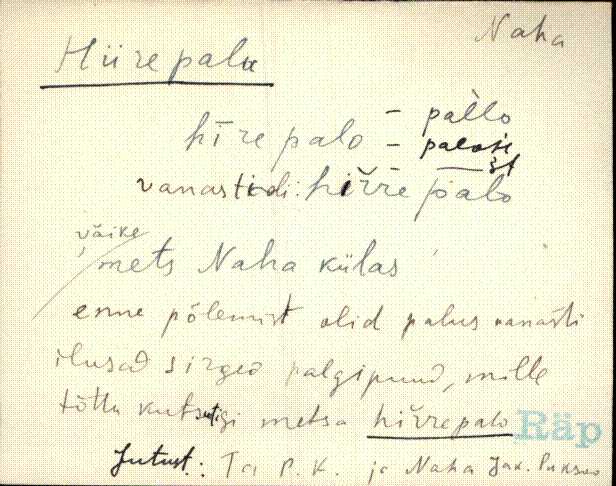 Naha
Hiirepalu
hīre palo – pàllo
– palosi
st
vanasti oli: hiŕrè pàlo
väike
mets Naha külas
enne põlemist olid palus vanasti
ilusad sirged palgipuud, mille
tõttu kutsutigi metsa hiŕrepalo
Räp
Jutust.: Ta P. K. ja Naha Jak. Puksov